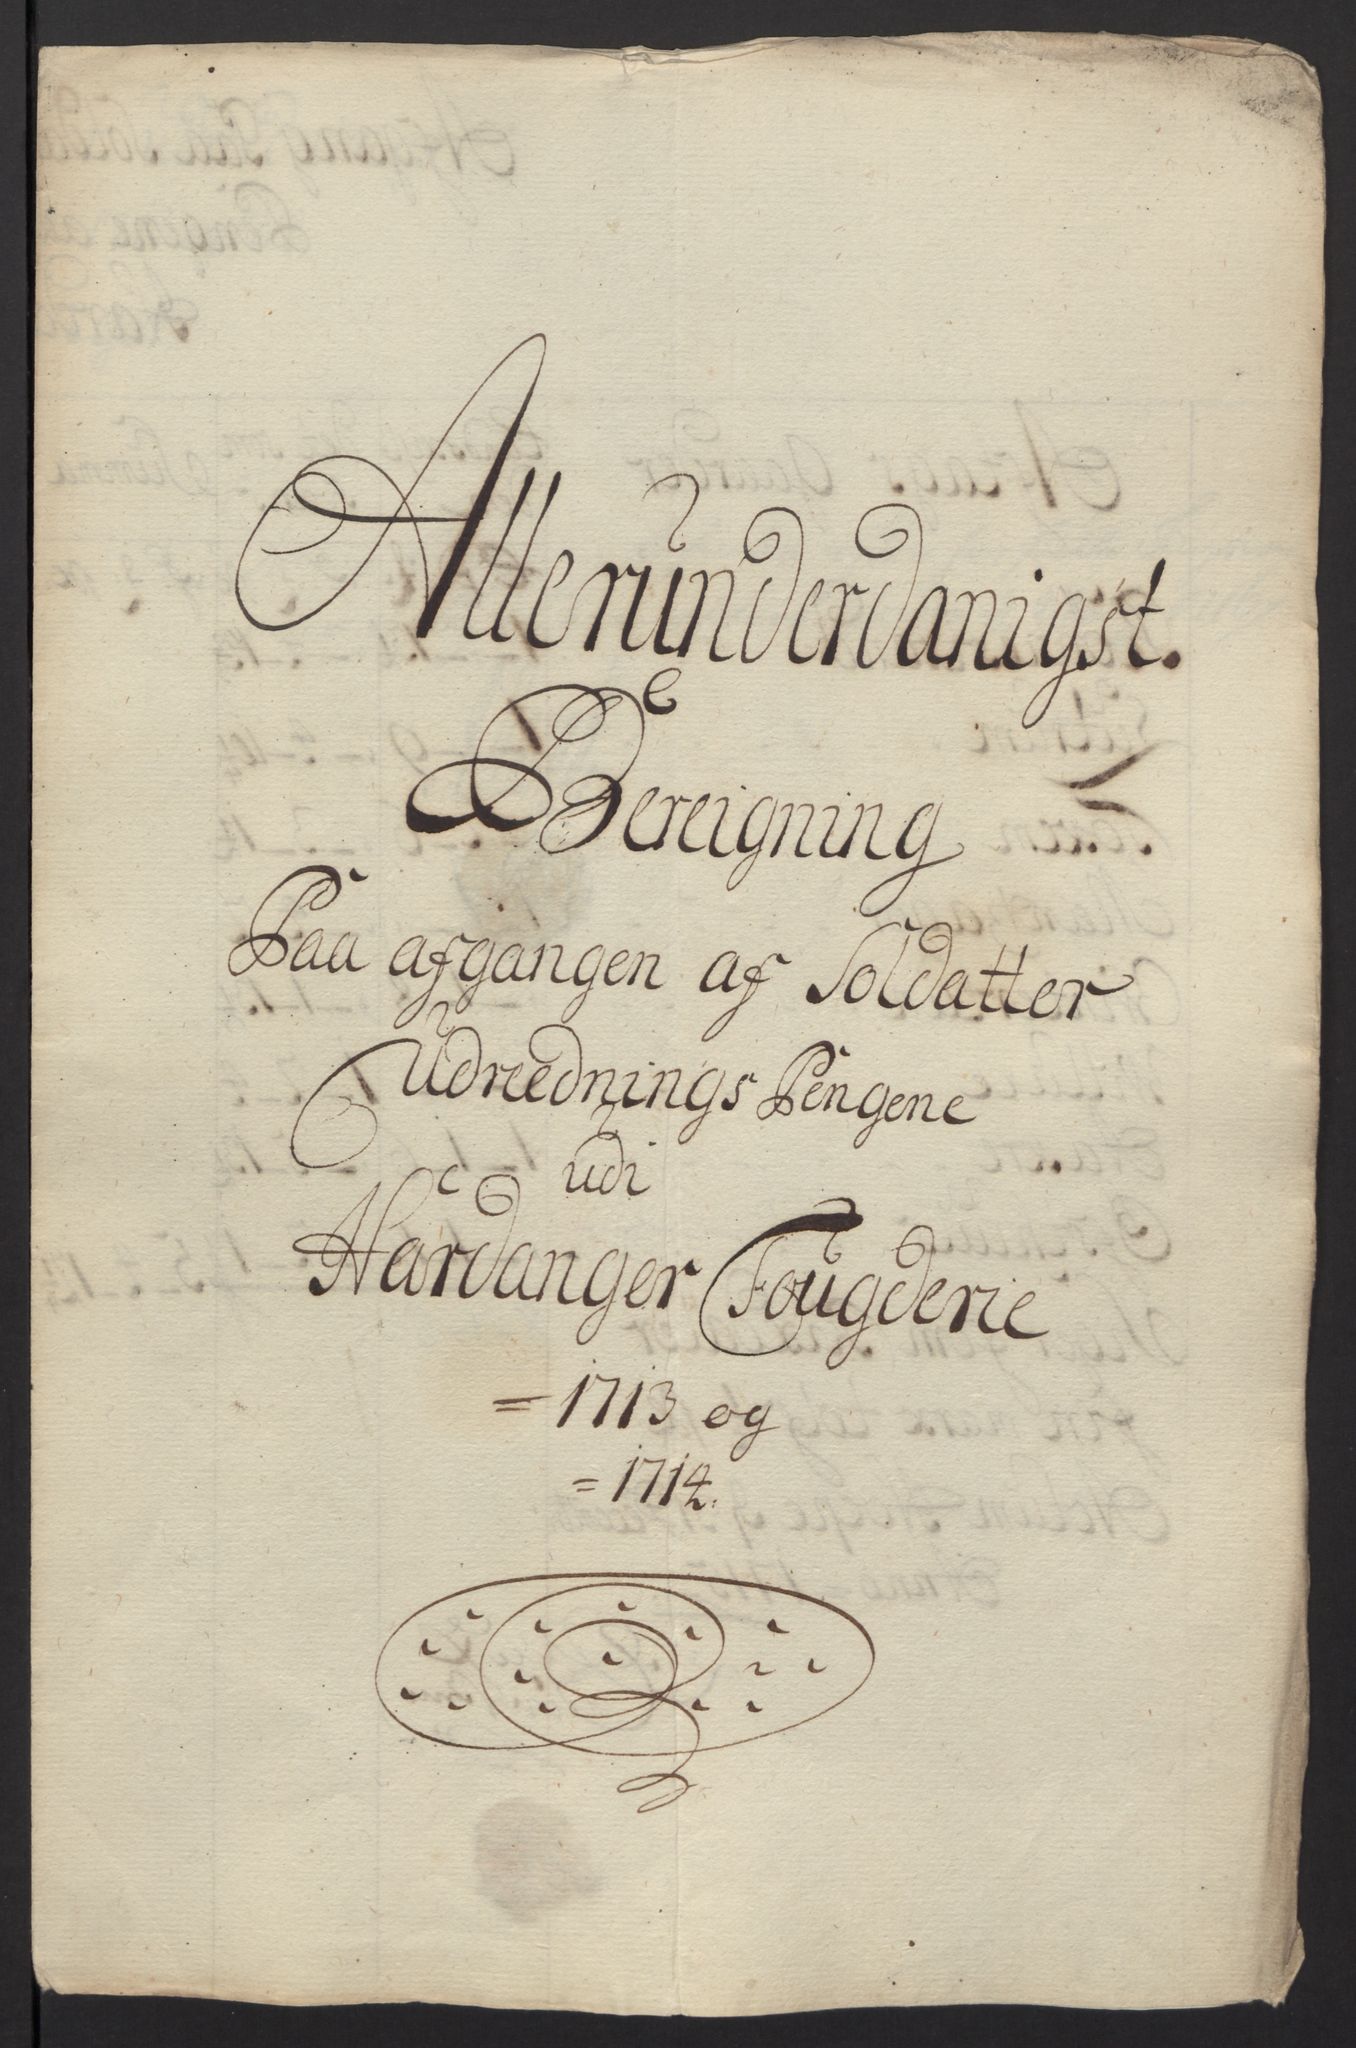 Allerunderdanigst.
Bereigning
Paa afgangen af Soldatter
Udreednings Pengene
udi
Hardanger Fougderie
= 1713 og
= 1714.